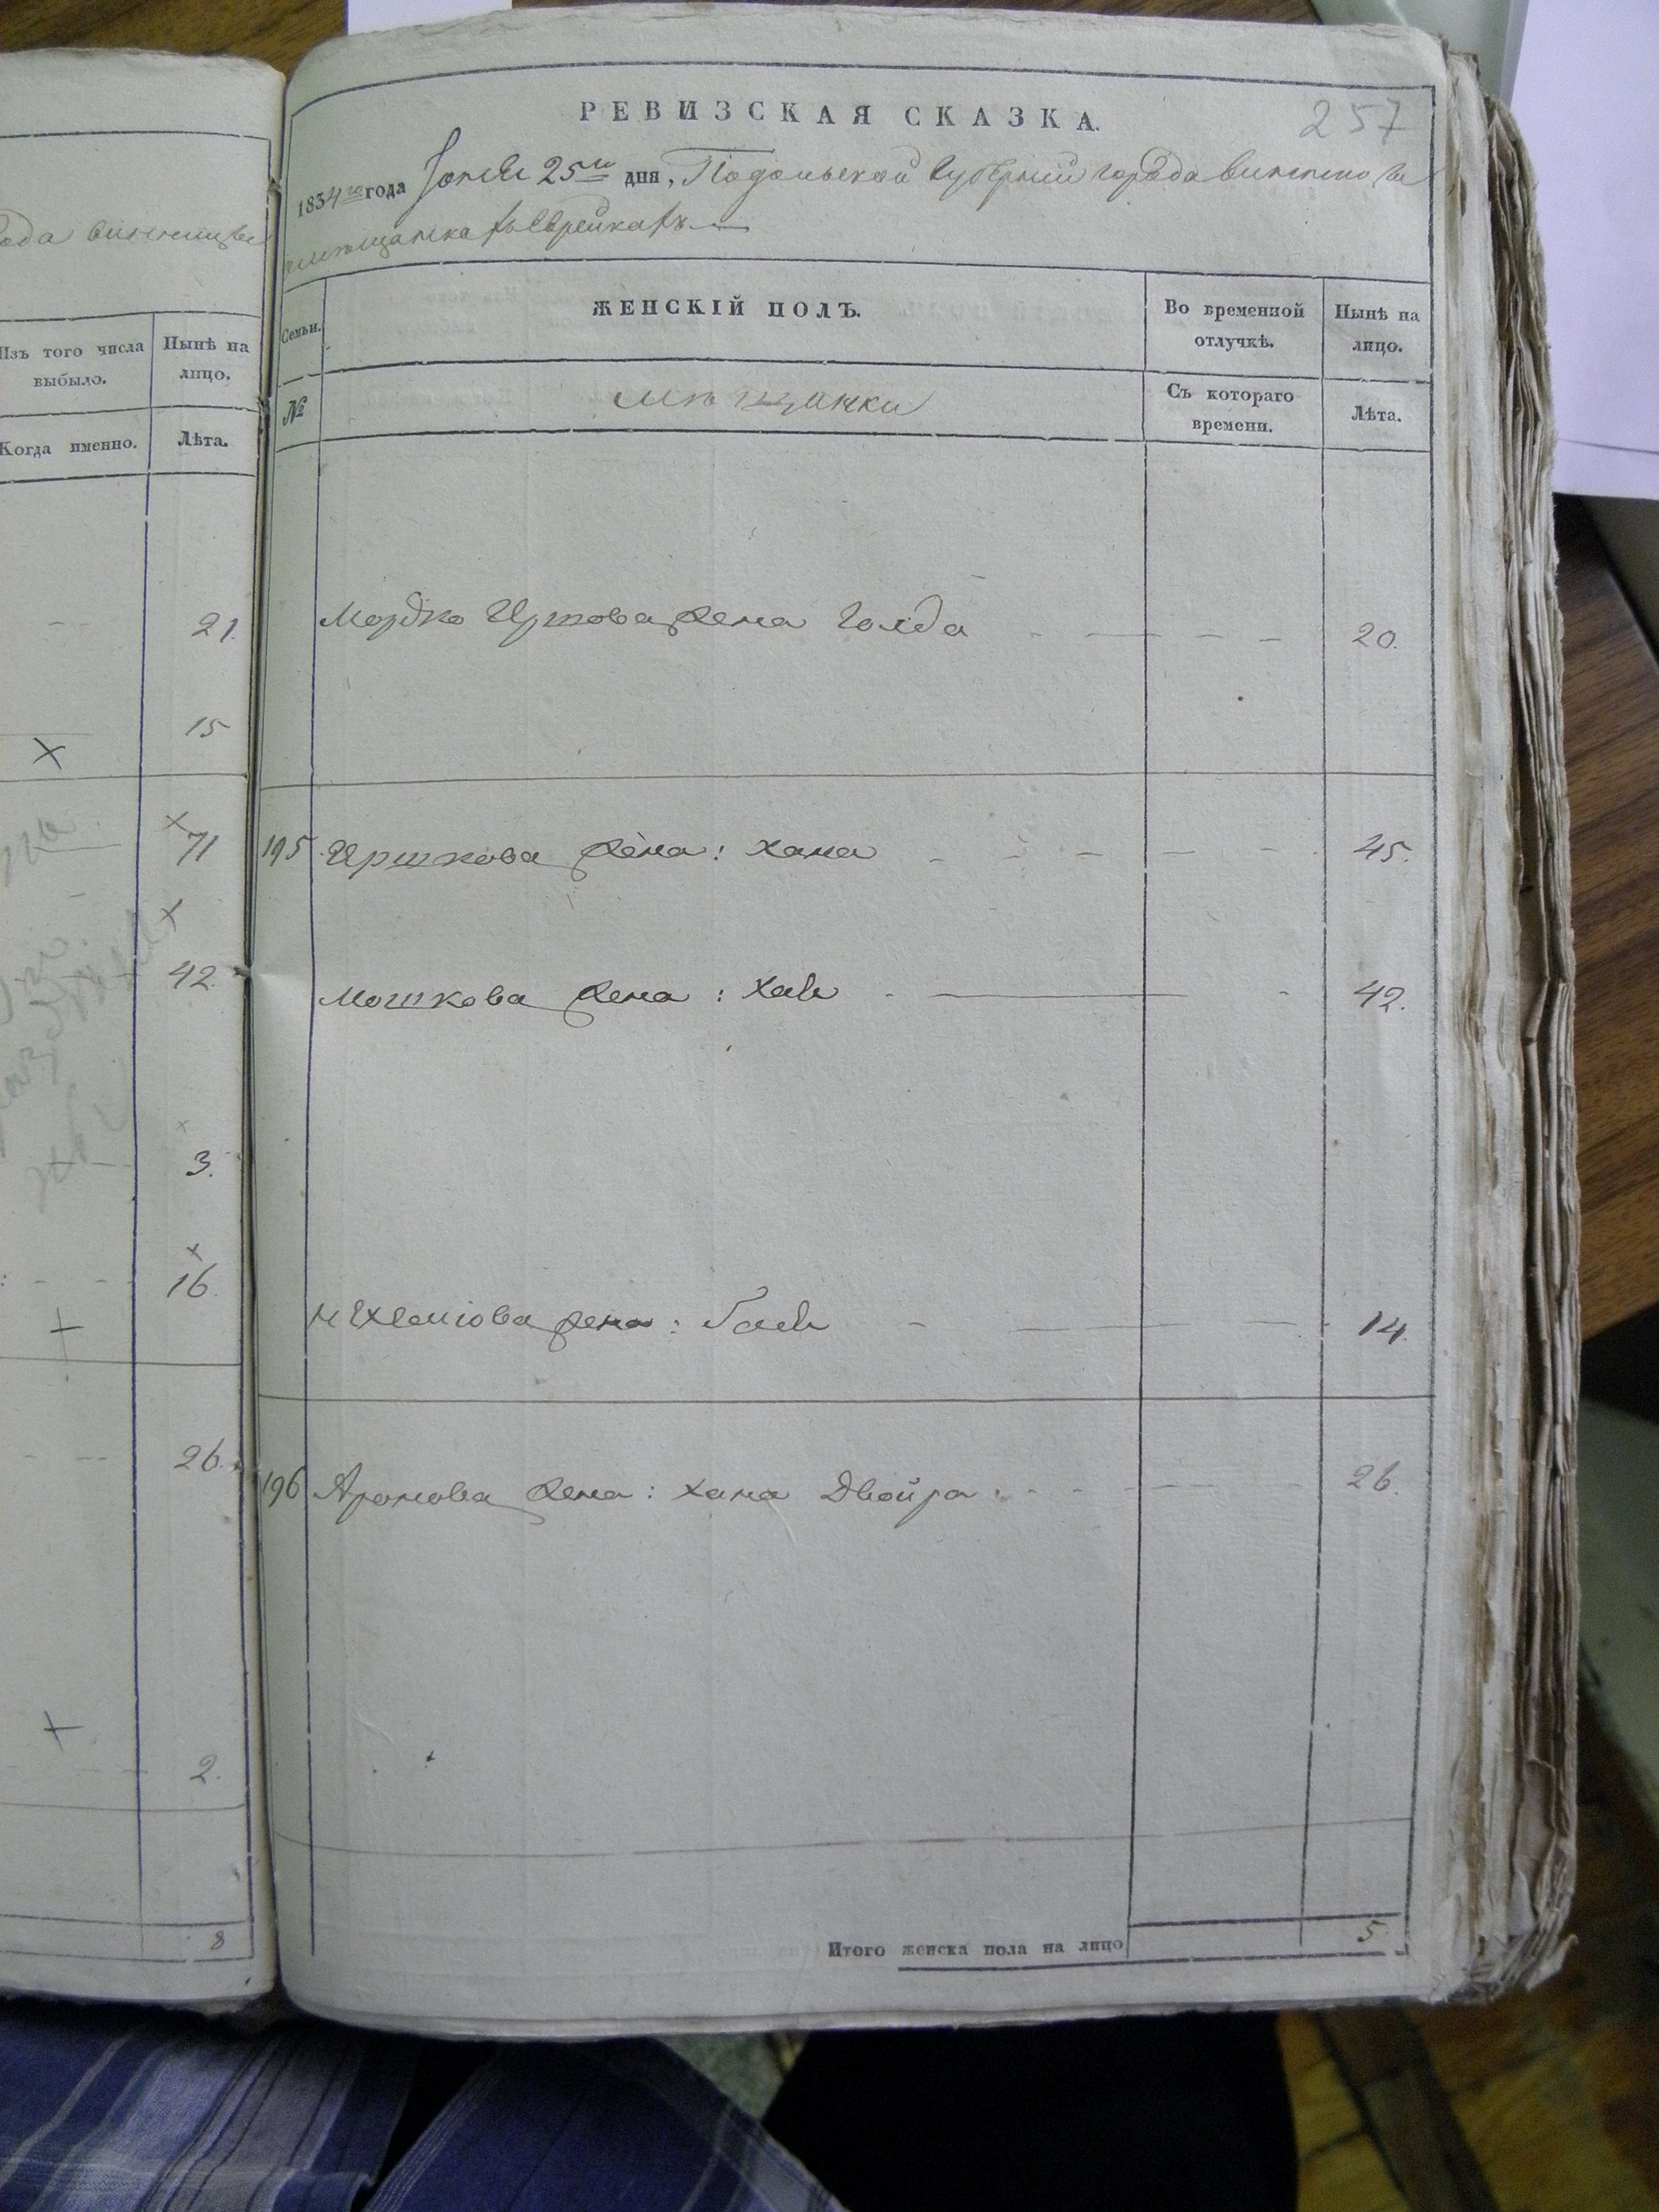 ода винницы
Изъ того числа выбыло.
Нынѣ на лицо.
Когда именно.
Лѣта.
21.
15
71
42.
3.
16.
26.
2.
8
257
РЕВИЗСКАЯ СКАЗКА.
1834го года Іюня 25го дня, Подольской Губерніи города винницы
мѣщанкахъ Еврейкахъ
Семьи.
ЖЕНСКІЙ ПОЛЪ.
Во временной отлучкѣ.
Нынѣ на лицо.
№
мѣщанки
Съ котораго времени.
Лѣта.
Мордко Иршова жена Голда 20.
195 Иршкова жена: хана 45.
Мошкова жена: хая 42.
жена: 14.
196 Аронова жена: хана Двойра 26.
Итого женска пола на лицо 5.